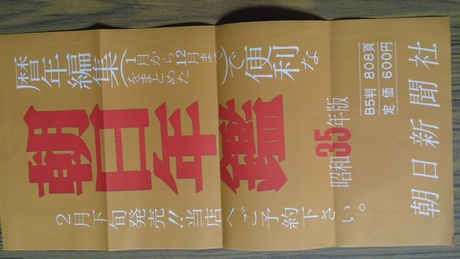 暦年編集(1月から12月までをまとめた)で便利な
朝日年鑑
昭和35年版
B5判 808頁
定価 600円
朝日新聞社
2月下旬発売!!当店へご予約下さい。